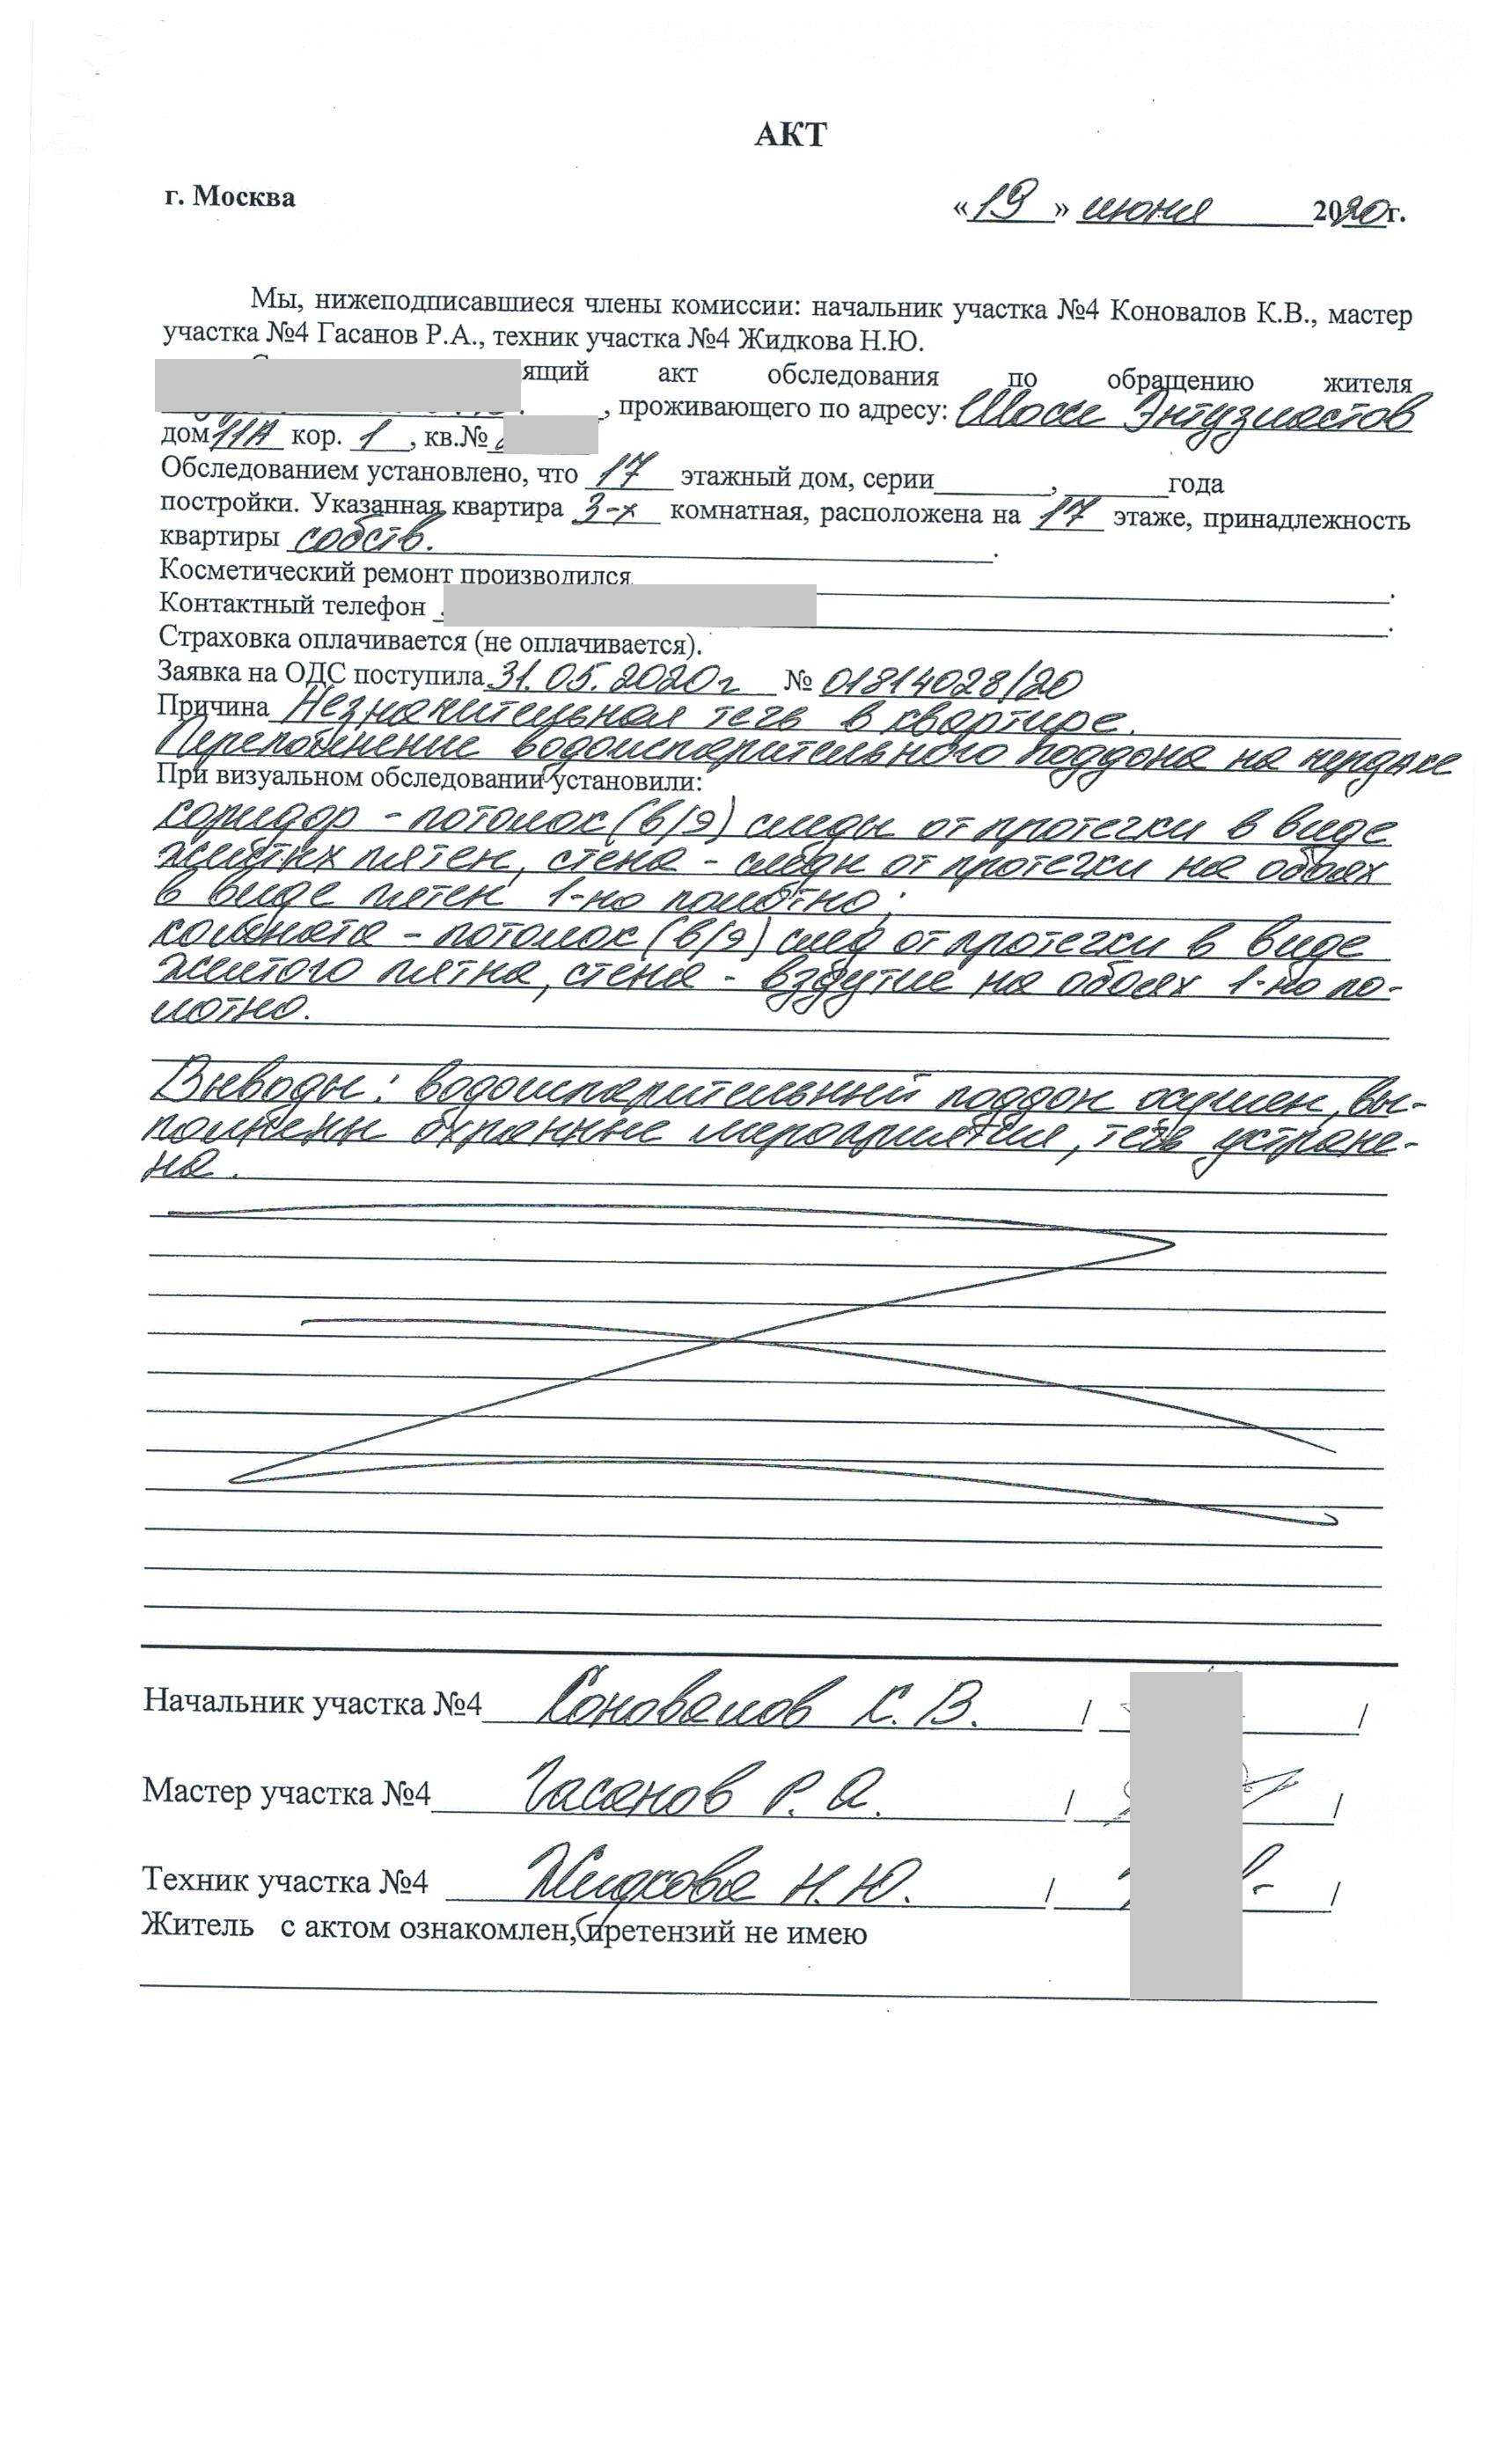 АКТ
г. Москва «19» июня 2020г.
Мы, нижеподписавшиеся члены комиссии: начальник участка №4 Коновалов К.В., мастер
участка №4 Гасанов Р.А., техник участка №4 Жидкова Н.Ю.
ящий акт обследования по обращению жителя
, проживающего по адресу: Шоссе Энтузиастов
дом 11А кор. 1, кв.№
Обследованием установлено, что 17 этажный дом, серии_______, _______года
постройки. Указанная квартира 3-х комнатная, расположена на 17 этаже, принадлежность
квартиры собств.
Косметический ремонт производился
Контактный телефон
Страховка оплачивается (не оплачивается).
Заявка на ОДС поступила 31.05.2020г № 01814028/20
Причина Незначительная течь в квартире.
Переполнение водоиспарительного поддона на чердаке
При визуальном обследовании установили:
коридор - потолок (в/э) следы от протечки в виде
желтых пятен, стена - следы от протечки на обоях
в виде пятен 1-но полотно;
комната - потолок (в/э) след от протечки в виде
желтого пятна, стена - вздутие на обоях 1-но по-
лотно.
Выводы: водоиспарительный поддон осушен, вы-
полнены охранные мероприятия, течь устране-
на.
Начальник участка №4 Коновалов К.В. / /
Мастер участка №4 Гасанов Р.А. / /
Техник участка №4 Жидкова Н.Ю. / /
Житель с актом ознакомлен, претензий не имею